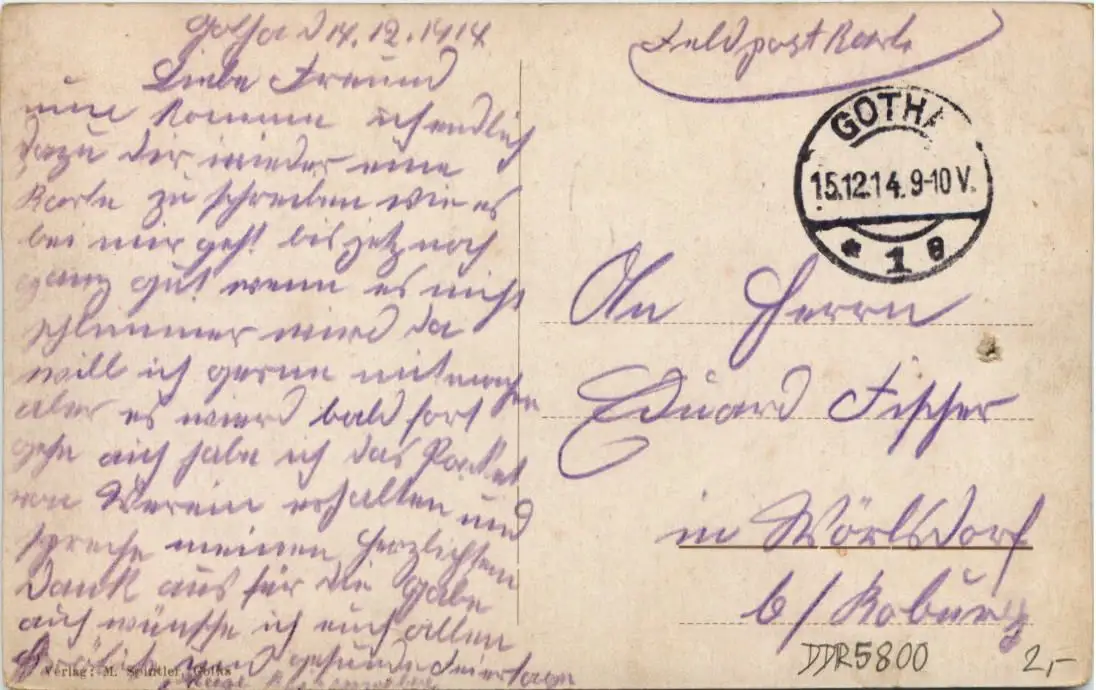 Gotha d 14.12.1914
Liebe Freund
nun komme ich endlich
dazu dir wieder eine
Karte zu schreiben wie es
bei mir geht bis jetz noch
ganz gut wenn es nicht
schlimmer wird da
will ich gerne mitmachen
aber es wierd bald fort
gehn auch habe ich das Packet
von Verein erhalten und
spreche meinen Herzlichsten
Dank aus für die Gabe
auch wünsche ich euch allen
Fröhliche und gesunde Feiertage
Verlag: M. Spintler, Gotha
Feldpostkarte
GOTHA
15.12.14. 9-10 V.
* 1 g
An Herrn
Eduard Fischer
in Wörlsdorf
b/Koburg
DDR5800 2,-